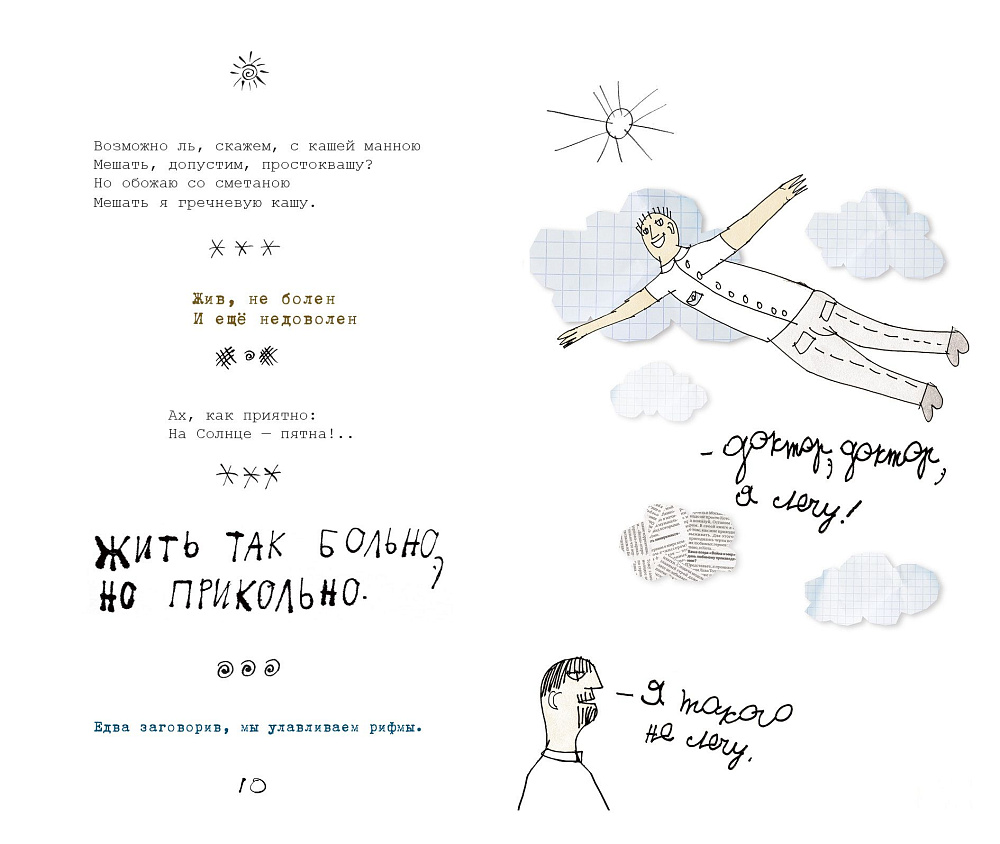 Возможно ль, скажем, с кашей манною
Мешать, допустим, простоквашу?
Но обожаю со сметаною
Мешать я гречневую кашу.
Жив, не болен
И ещё недоволен
Ах, как приятно:
На Солнце — пятна!..
ЖИТЬ ТАК БОЛЬНО,
НО ПРИКОЛЬНО.
Едва заговорив, мы улавливаем рифмы.
10
– доктор, доктор,
я лечу!
– Я такого
не лечу.